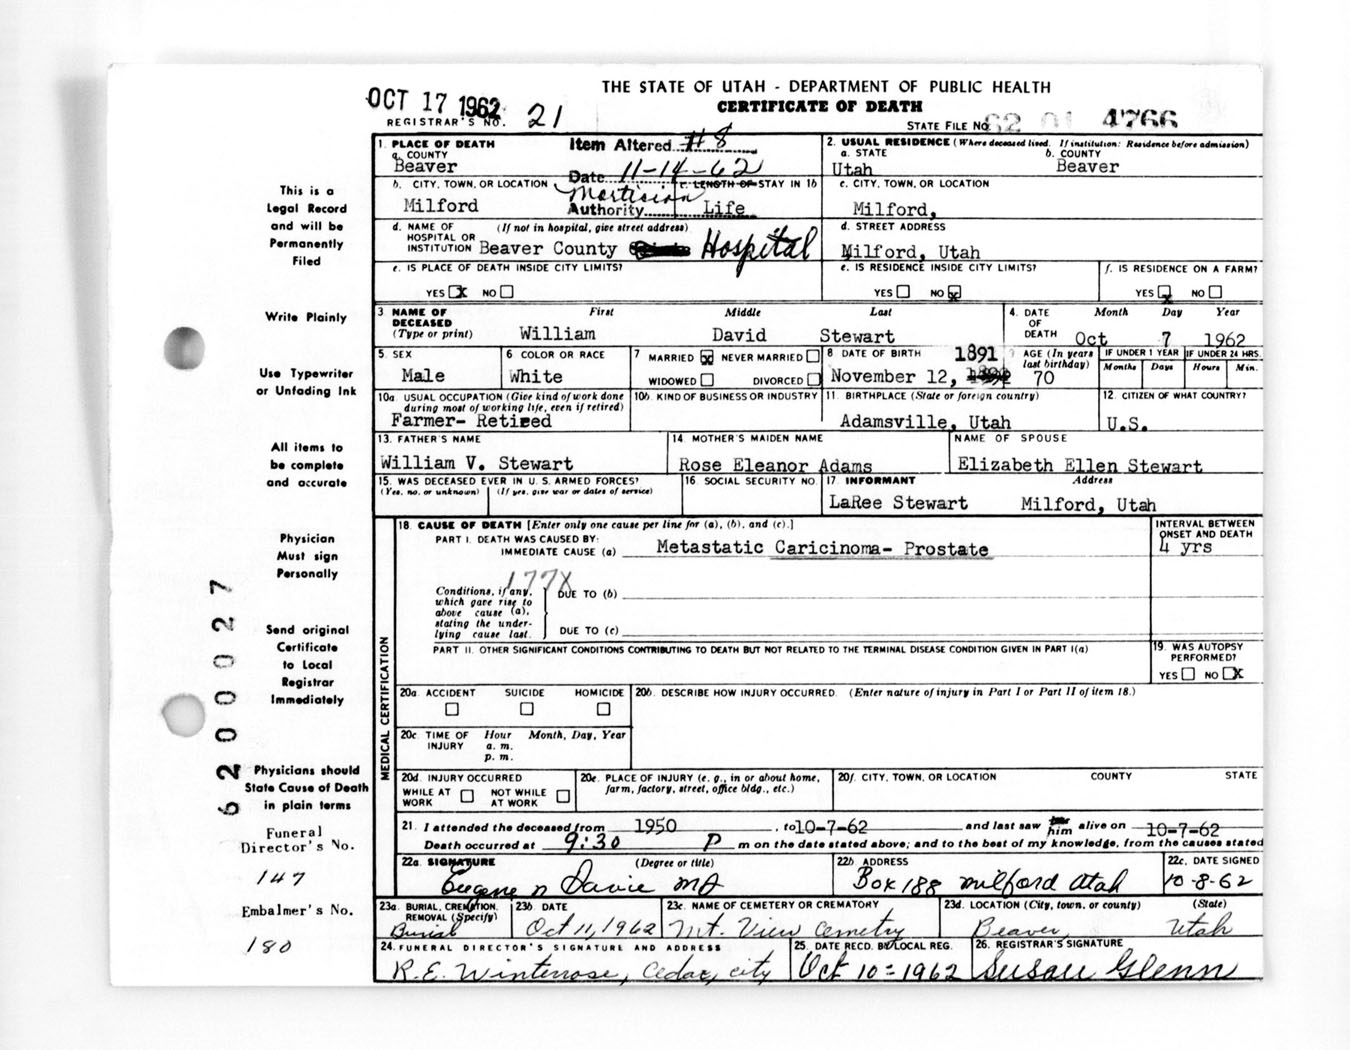 THE STATE OF UTAH - DEPARTMENT OF PUBLIC HEALTH
CERTIFICATE OF DEATH
OCT 17 1962
REGISTRAR'S NO. 21
STATE FILE NO. 62 01 4766
This is a
Legal Record
and will be
Permanently
Filed
Write Plainly
Use Typewriter
or Unfading Ink
All items to
be complete
and accurate
Physician
Must sign
Personally
Send original
Certificate
to Local
Registrar
Immediately
Physicians should
State Cause of Death
in plain terms
Funeral
Director's No.
147
Embalmer's No.
180
6200027
1. PLACE OF DEATH
a. COUNTY
Beaver
Item Altered #8
Date 11-14-62
Mortician
Authority
2. USUAL RESIDENCE (Where deceased lived. If institution: Residence before admission)
a. STATE
Utah
b. COUNTY
Beaver
b. CITY, TOWN, OR LOCATION
Milford
c. LENGTH OF STAY IN 1b
Life
c. CITY, TOWN, OR LOCATION
Milford,
d. NAME OF HOSPITAL OR INSTITUTION (If not in hospital, give street address)
Beaver County Hospital
d. STREET ADDRESS
Milford, Utah
e. IS PLACE OF DEATH INSIDE CITY LIMITS?
YES X NO
e. IS RESIDENCE INSIDE CITY LIMITS?
YES NO X
f. IS RESIDENCE ON A FARM?
YES X NO
3. NAME OF DECEASED (Type or print)
First Middle Last
William David Stewart
4. DATE OF DEATH
Month Day Year
Oct 7 1962
5. SEX
Male
6 COLOR OR RACE
White
7 MARRIED X NEVER MARRIED
WIDOWED DIVORCED
8 DATE OF BIRTH
November 12, 1891
9 AGE (In years last birthday)
70
IF UNDER 1 YEAR
Months Days
IF UNDER 24 HRS.
Hours Min.
10a. USUAL OCCUPATION (Give kind of work done during most of working life, even if retired)
Farmer- Retired
10b. KIND OF BUSINESS OR INDUSTRY
11. BIRTHPLACE (State or foreign country)
Adamsville, Utah
12. CITIZEN OF WHAT COUNTRY?
U.S.
13. FATHER'S NAME
William V. Stewart
14. MOTHER'S MAIDEN NAME
Rose Eleanor Adams
NAME OF SPOUSE
Elizabeth Ellen Stewart
15. WAS DECEASED EVER IN U. S. ARMED FORCES?
(Yes, no, or unknown) (If yes, give war or dates of service)
16. SOCIAL SECURITY NO.
17. INFORMANT Address
LaRee Stewart Milford, Utah
MEDICAL CERTIFICATION
18. CAUSE OF DEATH [Enter only one cause per line for (a), (b), and (c).]
PART I. DEATH WAS CAUSED BY:
IMMEDIATE CAUSE (a) Metastatic Caricinoma- Prostate
INTERVAL BETWEEN ONSET AND DEATH
4 yrs
177X
Conditions, if any, which gave rise to above cause (a), stating the underlying cause last.
DUE TO (b)
DUE TO (c)
PART II. OTHER SIGNIFICANT CONDITIONS CONTRIBUTING TO DEATH BUT NOT RELATED TO THE TERMINAL DISEASE CONDITION GIVEN IN PART I(a)
19. WAS AUTOPSY PERFORMED?
YES NO X
20a. ACCIDENT SUICIDE HOMICIDE
20b. DESCRIBE HOW INJURY OCCURRED. (Enter nature of injury in Part I or Part II of item 18.)
20c TIME OF INJURY Hour Month, Day, Year
a. m.
p. m.
20d. INJURY OCCURRED
WHILE AT WORK NOT WHILE AT WORK
20e. PLACE OF INJURY (e. g., in or about home, farm, factory, street, office bldg., etc.)
20f. CITY, TOWN, OR LOCATION COUNTY STATE
21. I attended the deceased from 1950, to 10-7-62 and last saw him alive on 10-7-62
Death occurred at 9:30 P m on the date stated above; and to the best of my knowledge, from the causes stated
22a. SIGNATURE (Degree or title)
Eugene N Davie MD
22b. ADDRESS
Box 188 Milford Utah
22c. DATE SIGNED
10-8-62
23a. BURIAL, CREMATION, REMOVAL (Specify)
Burial
23b. DATE
Oct 11, 1962
23c. NAME OF CEMETERY OR CREMATORY
Mt. View Cemetry
23d. LOCATION (City, town, or county) (State)
Beaver, Utah
24. FUNERAL DIRECTOR'S SIGNATURE AND ADDRESS
R.E. Winterrose, Cedar, city
25. DATE RECD. BY LOCAL REG.
Oct 10-1962
26. REGISTRAR'S SIGNATURE
Susan Glenn